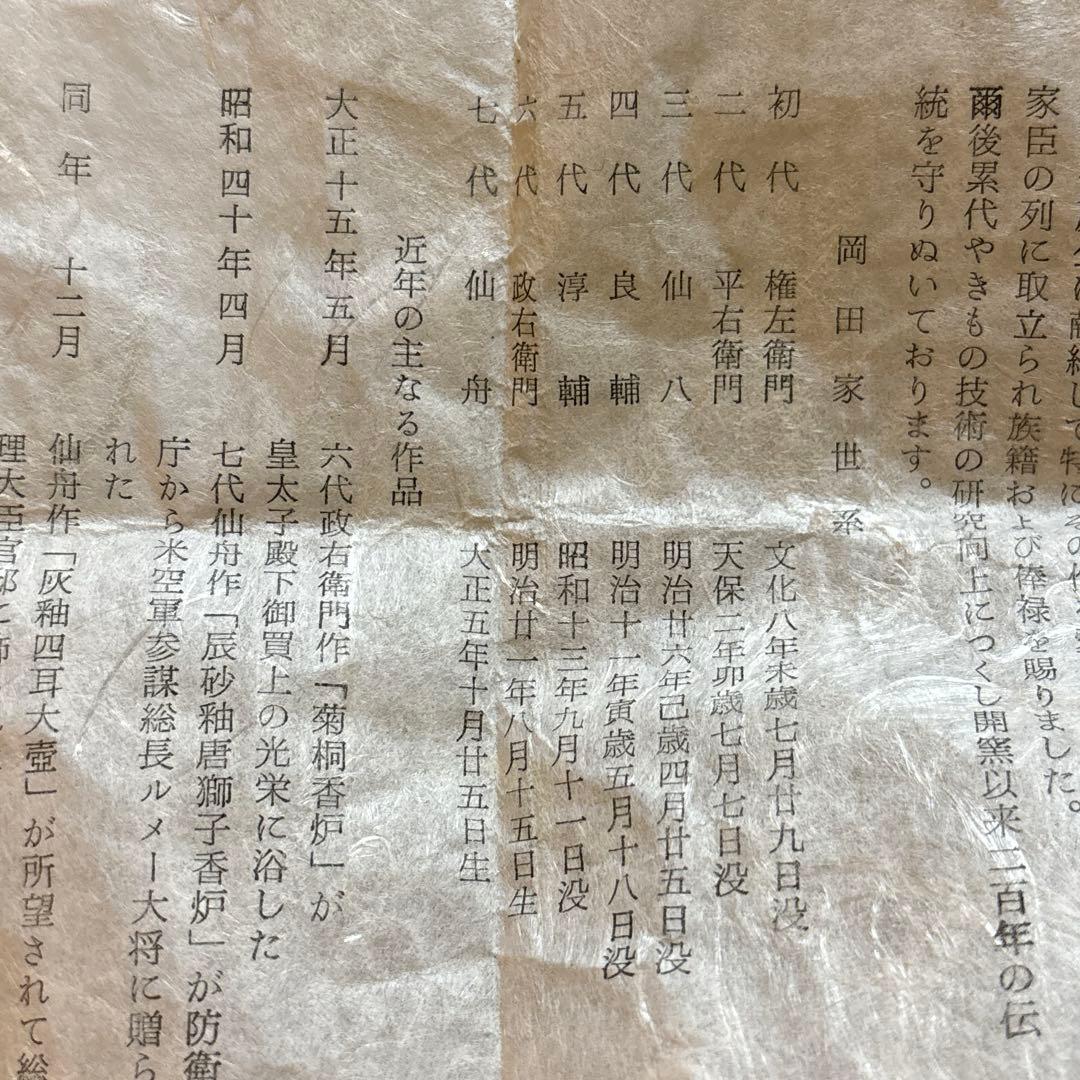 して特に
家臣の列に取立られ族籍および俸禄を賜りました。
爾後累代やきもの技術の研究向上につくし開窯以来二百年の伝
統を守りぬいております。
岡田家世系
初代 権左衛門 文化八年未歳七月廿九日没
二代 平右衛門 天保二年卯歳七月七日没
三代 仙八 明治廿六年己歳四月廿五日没
四代 良輔 明治十一年寅歳五月十八日没
五代 淳輔 昭和十三年九月十一日没
六代 政右衛門 明治廿一年八月十五日生
七代 仙舟 大正五年十月廿五日生
近年の主なる作品
大正十五年五月 六代政右衛門作「菊桐香炉」が
皇太子殿下御買上の光栄に浴した
昭和四十年四月 七代仙舟作「辰砂釉唐獅子香炉」が防衛
庁から米空軍参謀総長ルメー大将に贈ら
れた
同年十二月 仙舟作「灰釉四耳大壺」が所望されて総
理大臣官邸に